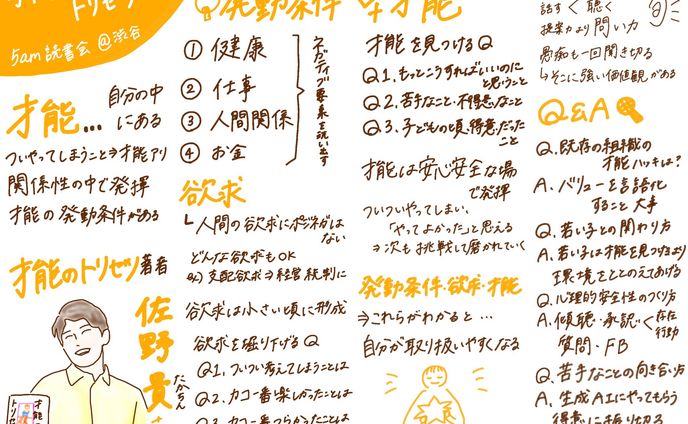 トリセツ
5am読書会@渋谷
才能...
自分の中
にある
ついやってしまうこと⇒才能アリ
関係性の中で発揮
才能の発動条件がある
才能のトリセツ著者
佐野貴
たかちん
才能
トリセ
発動条件
① 健康
② 仕事
③ 人間関係
④ お金
ネガティブ要素を洗い出す
欲求
人間の欲求にポジネガは
ない
どんな欲求もOK
ex) 支配欲求⇒経営、統判に
欲求は小さい頃に形成
欲求を掘り下げるQ
Q1. ついつい考えてしまうことは
Q2. 力コ一番楽しかったことは
Q3. 力コ一番つらかったことは
才能
才能を見つけるQ
Q1. もっとこうすればいいのに
と思うこと
Q2. 苦手なこと・不得意なこと
Q3. 子どもの頃、得意だった
こと
才能は安心安全な場
で発揮
ついついやってしまい、
「やってよかった」と思える
⇒次も挑戦して磨かれていく
発動条件・欲求・才能
⇒これらがわかると…
自分が取り扱いやすくなる
話す<聴く
提案力より問い力
愚痴も一回聞き切る
↳そこに強い価値観がある
Q&A
Q. 既存の組織の
才能ハッキは?
A. バリューを言語化
すること大事
Q. 若い子との関わり方
A. 若い子は才能を見つけるより
環境をととのえてあげる
Q. 心理的安全性のつくり方
A. 傾聴・承認<存在
行動
質問・FB
Q. 苦手なことの向き合い方
A. 生成AIにやってもらう
得意に振り切る